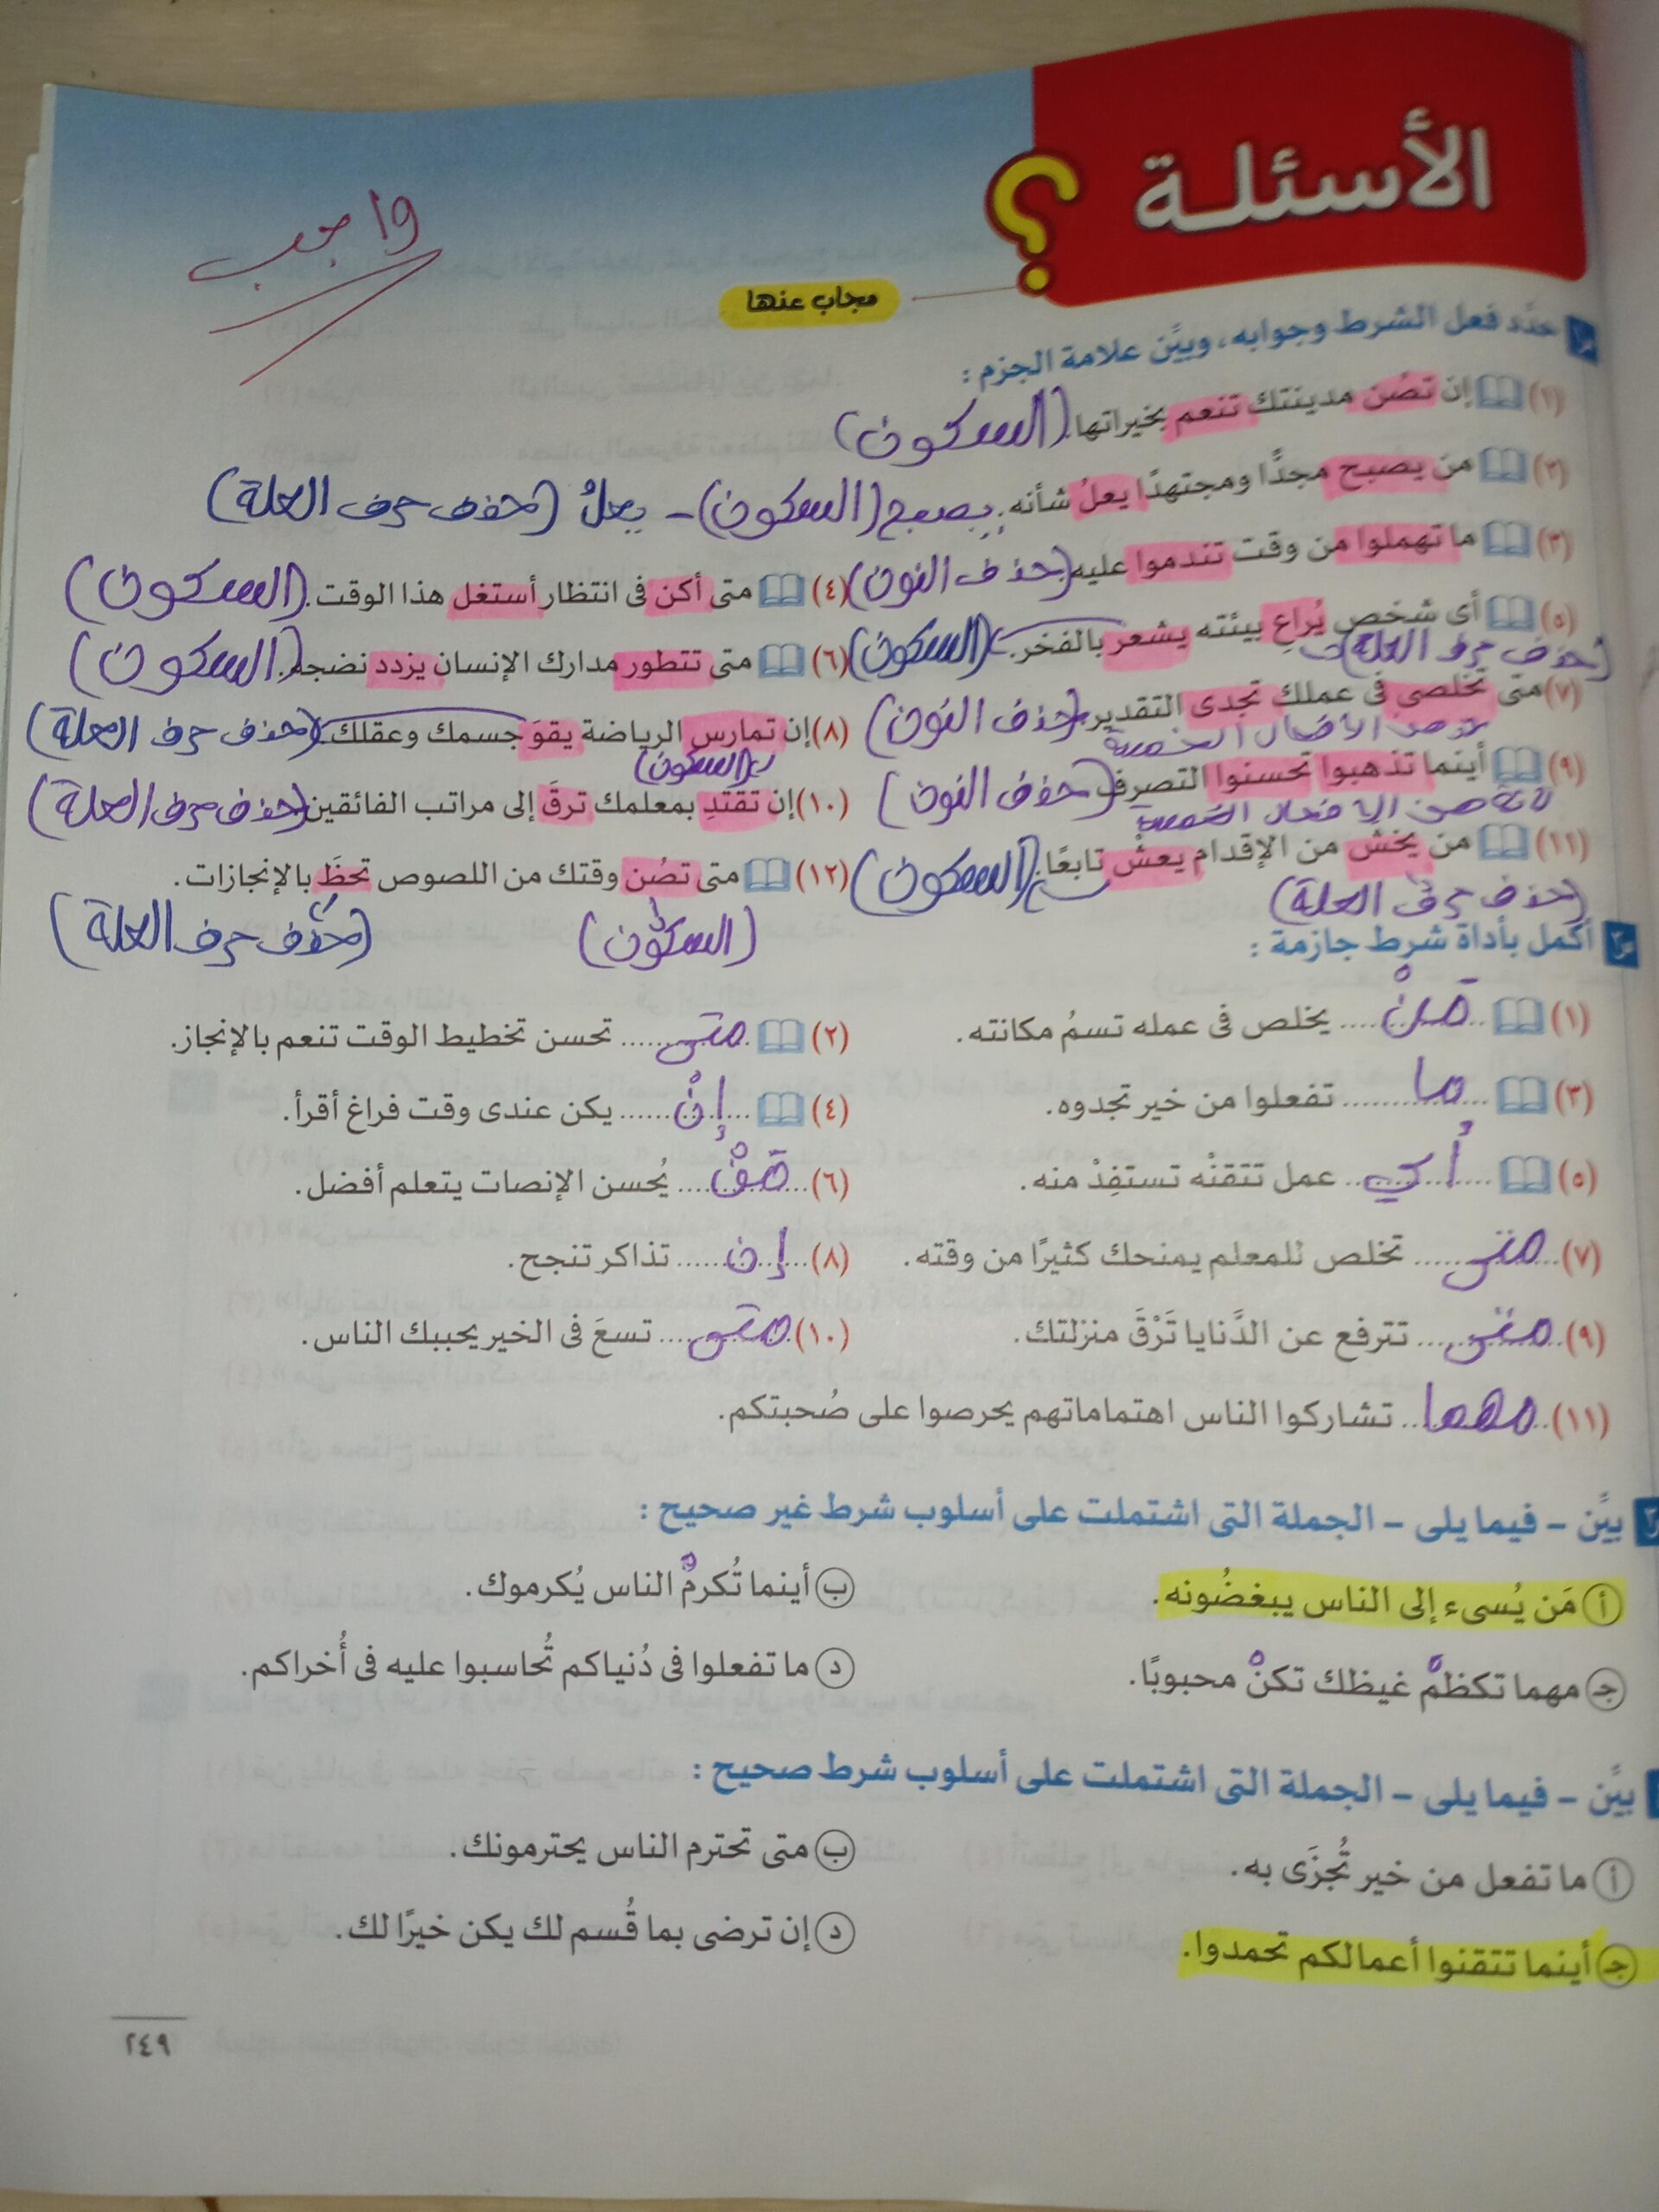 الأسئلة ؟
واجب
مجاب عنها
حدِّد فعل الشرط وجوابه، وبيِّن علامة الجزم :
(١) إن تصُن مدينتك تنعم بخيراتها. (السكون)
(٢) من يصبح مجدًّا ومجتهدًا يعلُ شأنه. يصبح (السكون) – يعلُ (حذف حرف العلة)
(٣) ما تهملوا من وقت تندموا عليه. (حذف النون)
(٤) متى أكن فى انتظار أستغل هذا الوقت. (السكون)
(٥) أى شخص يُراعِ بيئته يشعر بالفخر. (السكون)
(حذف حرف العلة)
(٦) متى تتطور مدارك الإنسان يزدد نضجه. (السكون)
(٧) متى تخلصى فى عملك تجدى التقدير. (حذف النون)
من الأفعال الخمسة
(٨) إن تمارس الرياضة يقوَ جسمك وعقلك. (حذف حرف العلة)
(السكون)
(٩) أينما تذهبوا تحسنوا التصرف. (حذف النون)
لأنه من الأفعال الخمسة
(١٠) إن تقتدِ بمعلمك ترقَ إلى مراتب الفائقين. (حذف حرف العلة)
(١١) من يخشَ من الإقدام يعشْ تابعًا. (السكون)
(حذف حرف العلة)
(١٢) متى تصُن وقتك من اللصوص تحظَ بالإنجازات.
(السكون) (حذف حرف العلة)
أكمل بأداة شرط جازمة :
(١) منْ يخلص فى عمله تسمُ مكانته.
(٢) متى تحسن تخطيط الوقت تنعم بالإنجاز.
(٣) ما تفعلوا من خير تجدوه.
(٤) إنْ يكن عندى وقت فراغ أقرأ.
(٥) أي عمل تتقنْه تستفِدْ منه.
(٦) مَنْ يُحسن الإنصات يتعلم أفضل.
(٧) متى تخلص للمعلم يمنحك كثيرًا من وقته.
(٨) إن تذاكر تنجح.
(٩) متى تترفع عن الدَّنايا تَرْقَ منزلتك.
(١٠) متى تسعَ فى الخير يحببك الناس.
(١١) مهما تشاركوا الناس اهتماماتهم يحرصوا على صُحبتكم.
بيِّن – فيما يلى – الجملة التى اشتملت على أسلوب شرط غير صحيح :
أ مَن يُسىء إلى الناس يبغضُونه.
ب أينما تُكرمْ الناس يُكرموك.
جـ مهما تكظمْ غيظك تكنْ محبوبًا.
د ما تفعلوا فى دُنياكم تُحاسبوا عليه فى أُخراكم.
بيِّن – فيما يلى – الجملة التى اشتملت على أسلوب شرط صحيح :
أ ما تفعل من خير تُجزَى به.
ب متى تحترم الناس يحترمونك.
جـ أينما تتقنوا أعمالكم تحمدوا.
د إن ترضى بما قُسم لك يكن خيرًا لك.
٢٤٩